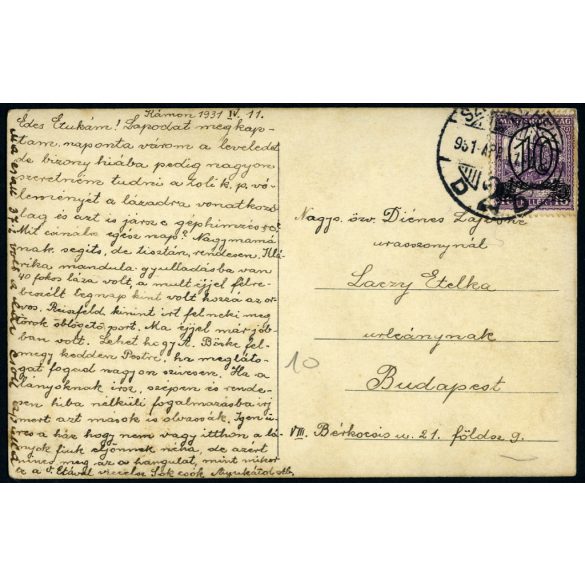 Kámon 1931 IV. 11.
Édes Etukám! Lapodat megkap-
tam. naponta várom a leveledet
de bizony hiába pedig nagyon
szeretném tudni a Zoli k. p. vé-
leményét a lázadra vonatkozó-
lag és azt is jársz e géphimzésre?
Mit csinálsz egész nap? Nagymamá-
nak segits, de tisztán, rendesen. Klá-
rika mandula gyulladásba van
40 fokos láza volt, a mult éjjel félre-
beszélt tegnap kint volt hozzá az or-
vos. kinint irt fel neki meg
torok öblögető port. Ma éjjel már job-
ban volt. Lehet hogy A. Böske fel-
megy kedden Pestre, ha megláto-
gat fogad nagyon szivesen. Ha a
lányoknak irsz, szépen és rende-
sen hiba nélküli fogalmazásba irj
mert azt mások is olvassák. Igen
a ház hogy nem vagy itthon a lá-
nyok fiuk eljönnek néha, de azért
nincs meg az a hangulat, mint mikor
te a Etával viccelsz Sok csók Anyukától
MAGYARORSZÁG
931 APR
10
D
Nagys. özv. Diénes Lajosné
urasszonynál
Laczy Etelka
urleánynak
Budapest
VIII. Bérkocsis u. 21. földsz 9.
10